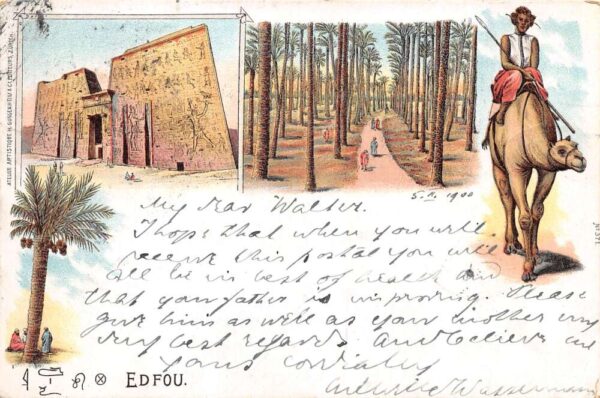 ATELIER ARTISTIQUE H. GUGGENHEIM & Cie EDITEURS, ZURICH.
No 371.
5.II.1900
My dear Walter.
I hope that when you will
receive this postal you will
all be in best of health and
that your father is improving. Please
give him as well as your mother my
very best regards. And believe me
yours cordially
Wassermann
EDFOU.